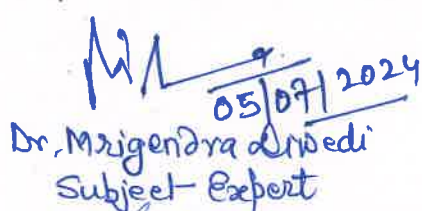 05/07/2024
Dr. Mrigendra Dwivedi
Subject Expert